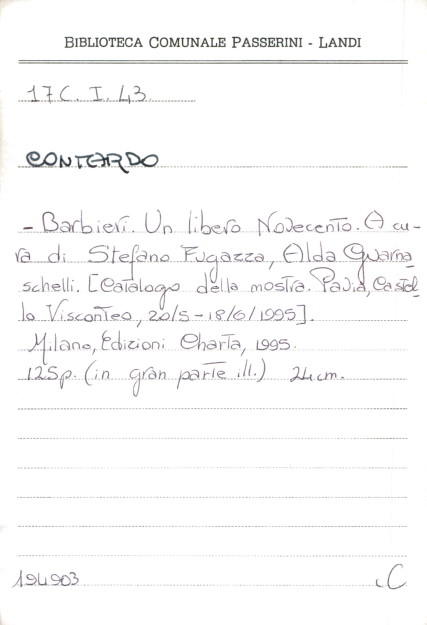 BIBLIOTECA COMUNALE PASSERINI - LANDI
17 C. I. 43
CONTARDO
- Barbieri. Un libero Novecento. A cu-
ra di Stefano Fugazza, Alda Guarna
schelli. [Catalogo della mostra. Pavia, Castel
lo Visconteo, 20/5-18/6/1995].
Milano, Edizioni Charta, 1995.
125p. (in gran parte ill.) 24cm.
194903 C